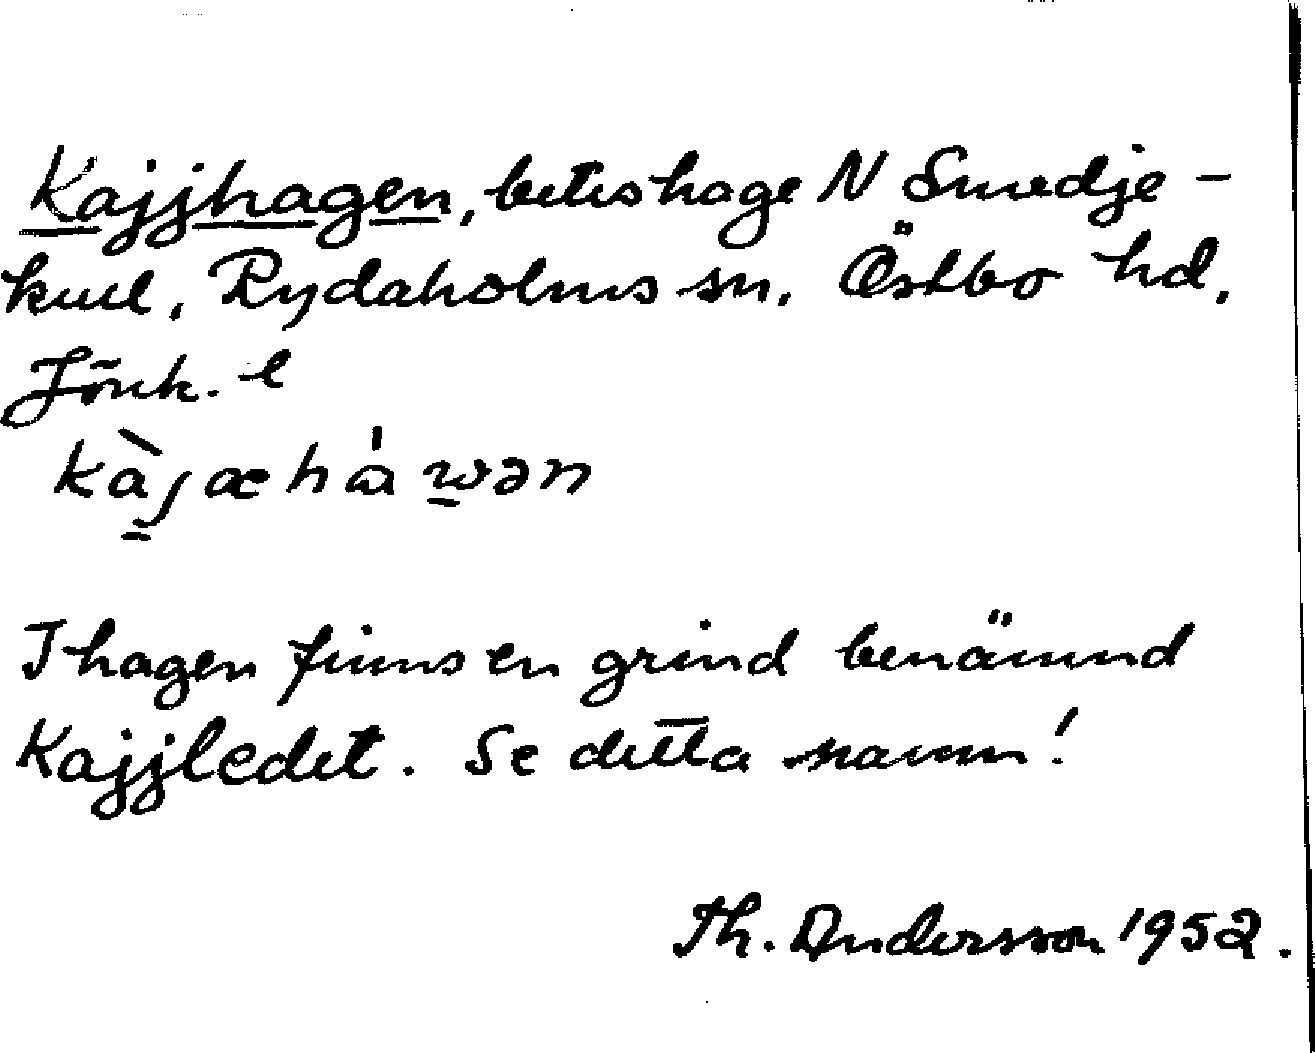 Kajjhagen, beteshage N Smedje-
kull, Rydaholms sn, Östbo hd,
Jönk. l
kàjæháwən
I hagen finns en grind benämnd
Kajjledet. Se detta namn!
Th. Andersson 1952.